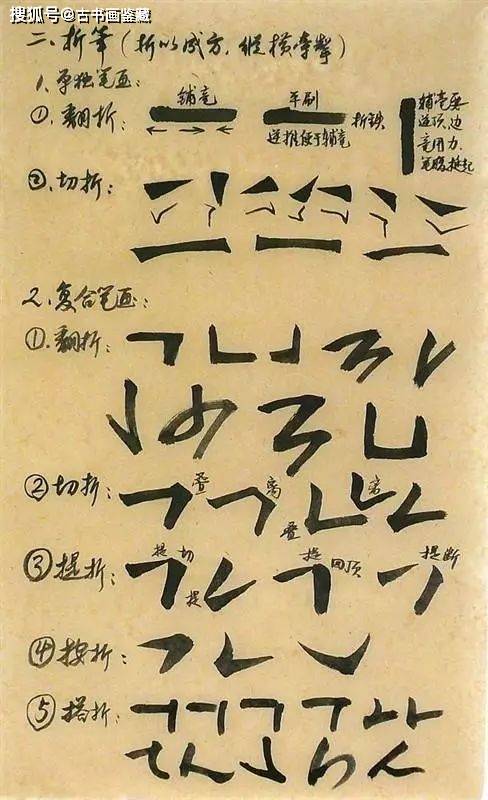 搜狐号@古书画鉴藏
二、折笔(折以成方,纵横牵掣)
1、单独笔画:
①、翻折:
铺毫
平刷
折铁
逆推便于铺毫
铺毫要
逆顶,边
毫用力,
笔腹挺起
②、切折:
2、复合笔画:
①、翻折:
②切折:
叠
离
叠
离
③提折:
提
切
提
提
回顶
提断
④按折:
⑤搭折: